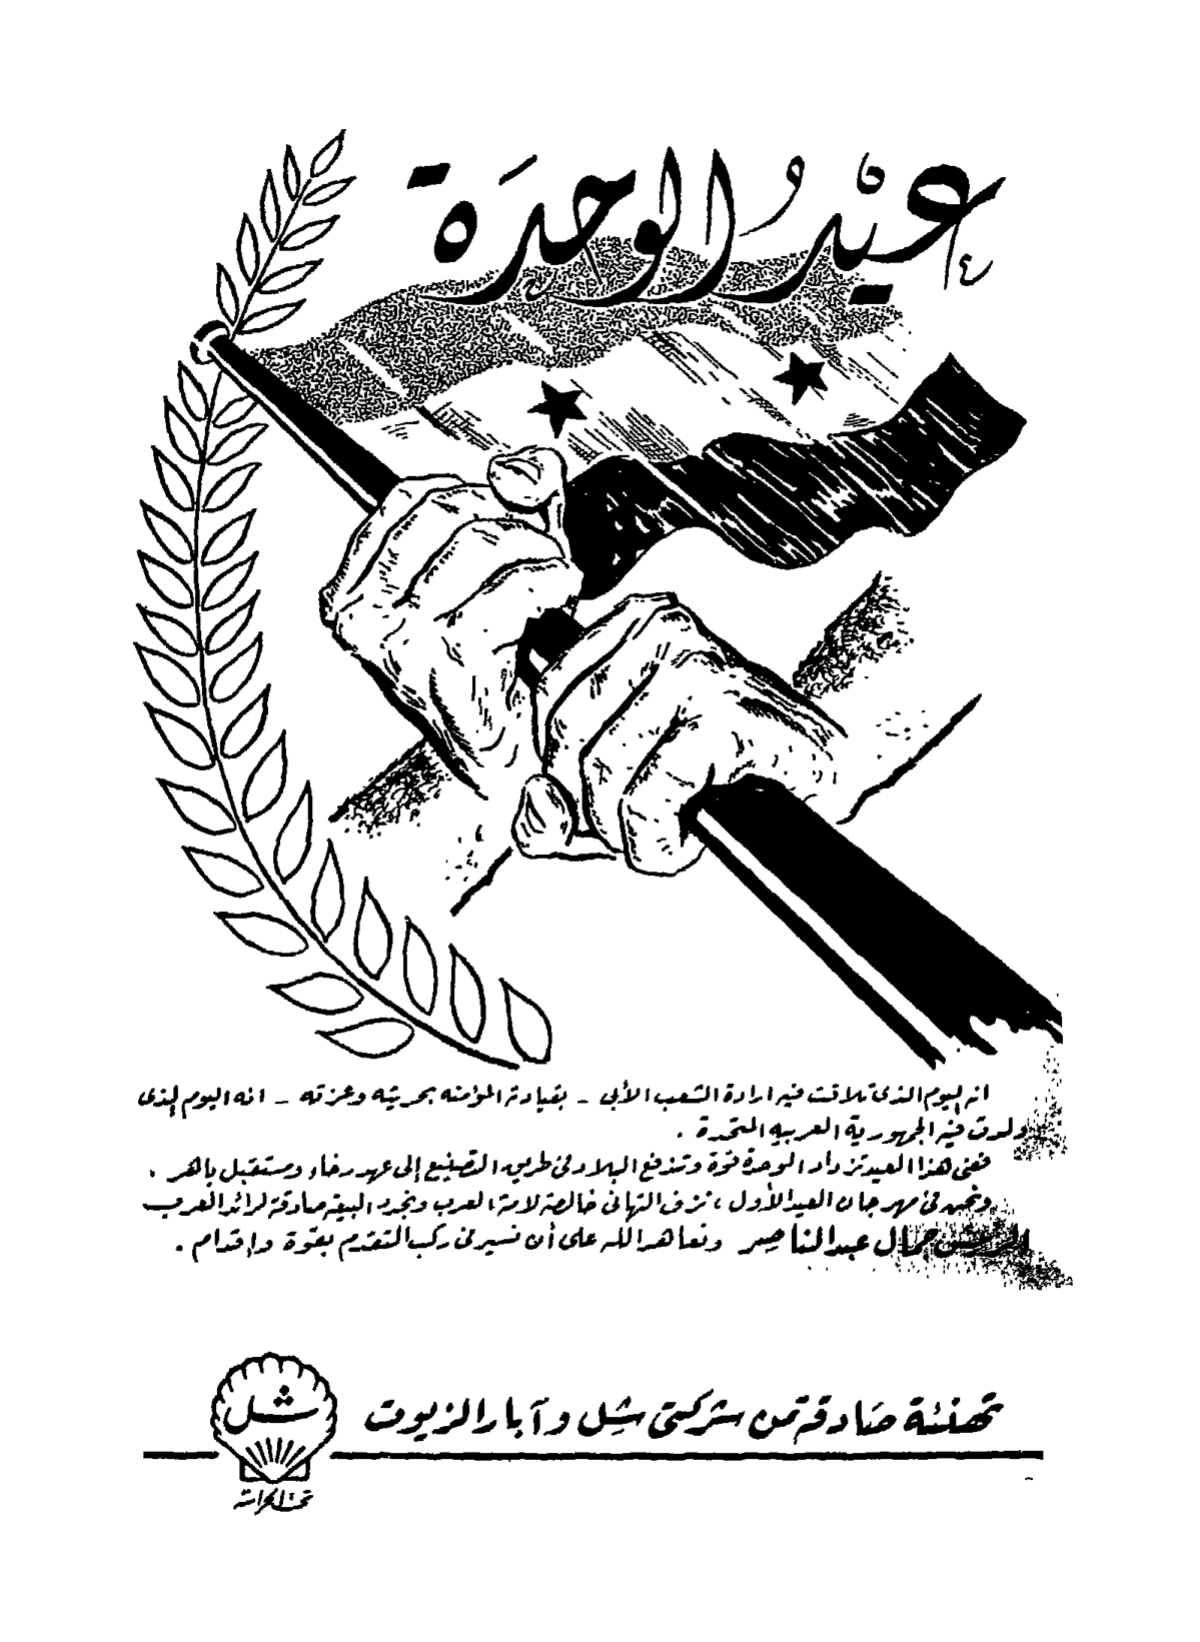 عِيْدُ الوحدَة
انه اليوم الذى تلاقت فيه ارادة الشعب الأبي - بقيادته المؤمنه بحريته وعزته - انه اليوم الذى
ولدت فيه الجمهورية العربيه المتحدة .
ففى هذا العيد تزداد الوحدة قوة وتندفع البلاد فى طريق التصنيع إلى عهد رخاء ومستقبل باهر .
ونحن فى مهرجان العيد الأول ، نزف التهانى خالصة لامة العرب ونجدد البيعة صادقة لرائد العرب
الرئيس جمال عبد الناصر ونعاهد الله على أن نسير فى ركب التقدم بقوة وإقدام .
تهنئة صَادقة من شركتى شِل وآبار الزيوت
شل
تحت الحراسة